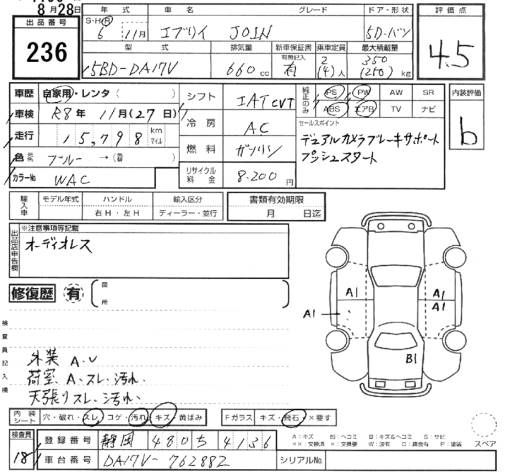 8月28日
出品番号
236
年式 車名 グレード ドア・形状 評価点
S・H・R
6年 11月 エブリイ JOIN 5D-バン
4.5
型式 排気量 新車保証書 乗車定員 最大積載量
有無記入
5BD-DA17V 660cc 有 2(4)人 350(250)kg
車歴 自家用・レンタ( )
車検 R8年 11月(27日)
走行 15,798 km マイル
色 ブルー→( )
カラーNo WAC
シフト IAT CVT
冷房 AC
燃料 ガソリン
リサイクル料金 8,200円
純正のみ
PS PW AW SR
ABS エアB TV ナビ
内装評価
b
セールスポイント
デュアルカメラブレーキサポート
プッシュスタート
輸入車 モデル年式 ハンドル 輸入区分
年 右H・左H ディーラー・並行
書類有効期限
月 日迄
出品店申告欄
※注意事項等記載
オーディオレス
修復歴 有
箇所
検査員記入欄
外装 A.U
荷室 A.スレ.汚れ.
天張りスレ.汚れ.
A1
A1
A1
B1
内装シート 穴・破れ・スレ コゲ・汚れ・キズ・黄ばみ
Fガラス キズ・飛石・×要す
スペア
検査員
18
登録番号 静岡 480 ち 4136
車台番号 DA17V-762882
シリアルNo.